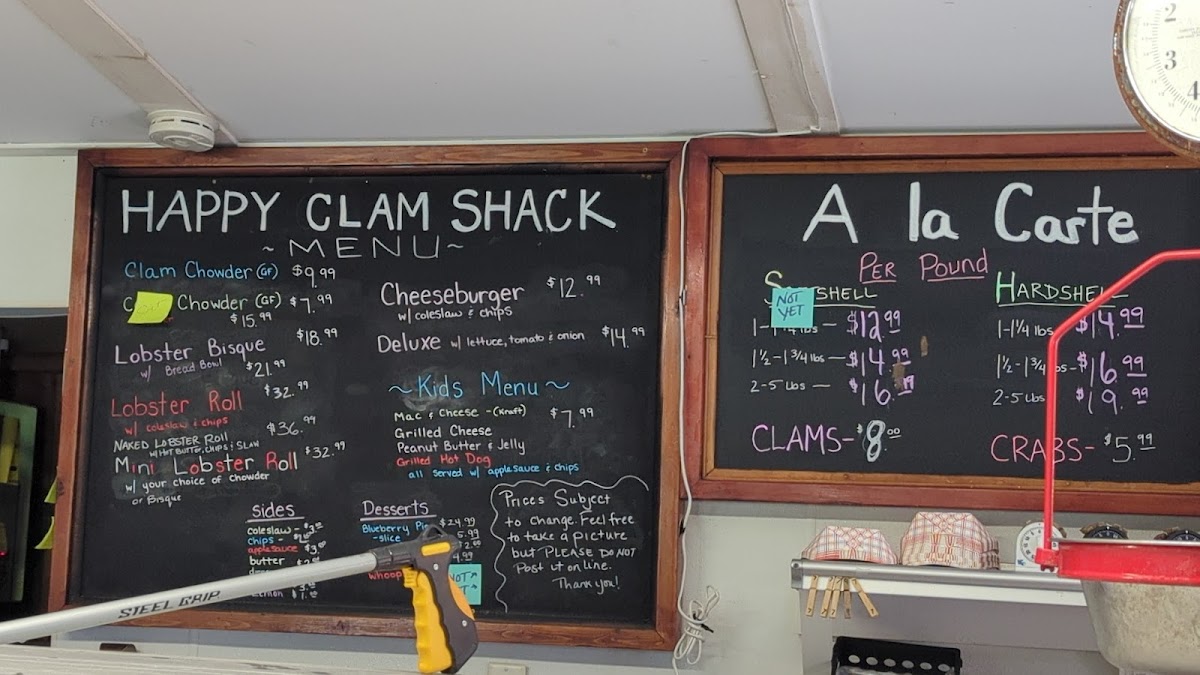 HAPPY CLAM SHACK
~MENU~
Clam Chowder (GF) $9.99
Chowder (GF) $7.99
$15.99
Lobster Bisque $18.99
w/ Bread Bowl $21.99
Lobster Roll $32.99
w/ coleslaw & chips
NAKED LOBSTER ROLL $36.99
w/ HOT BUTTER, CHIPS & SLAW
Mini Lobster Roll $32.99
w/ your choice of Chowder
or Bisque
Cheeseburger $12.99
w/ coleslaw & chips
Deluxe w/ lettuce, tomato & onion $14.99
~Kids Menu~
Mac & Cheese - (Kraft) $7.99
Grilled Cheese
Peanut Butter & Jelly
Grilled Hot Dog
all served w/ applesauce & chips
Sides
coleslaw -
chips -
applesauce
butter
Desserts
Blueberry Pie $24.99
-slice 5.99
whoop
Prices Subject
to change. Feel free
to take a picture
but PLEASE DO NOT
Post it online.
Thank you!
STEEL GRIP
A la Carte
PER POUND
SHELL
NOT
YET
1-1¼ lbs — $12.99
1½-1¾ lbs — $14.99
2-5 Lbs — $16.99
CLAMS- $8.00
HARDSHELL
1-1¼ lbs $14.99
1½-1¾ lbs - $16.99
2-5 Lbs $19.99
CRABS- $5.99
2
3
4